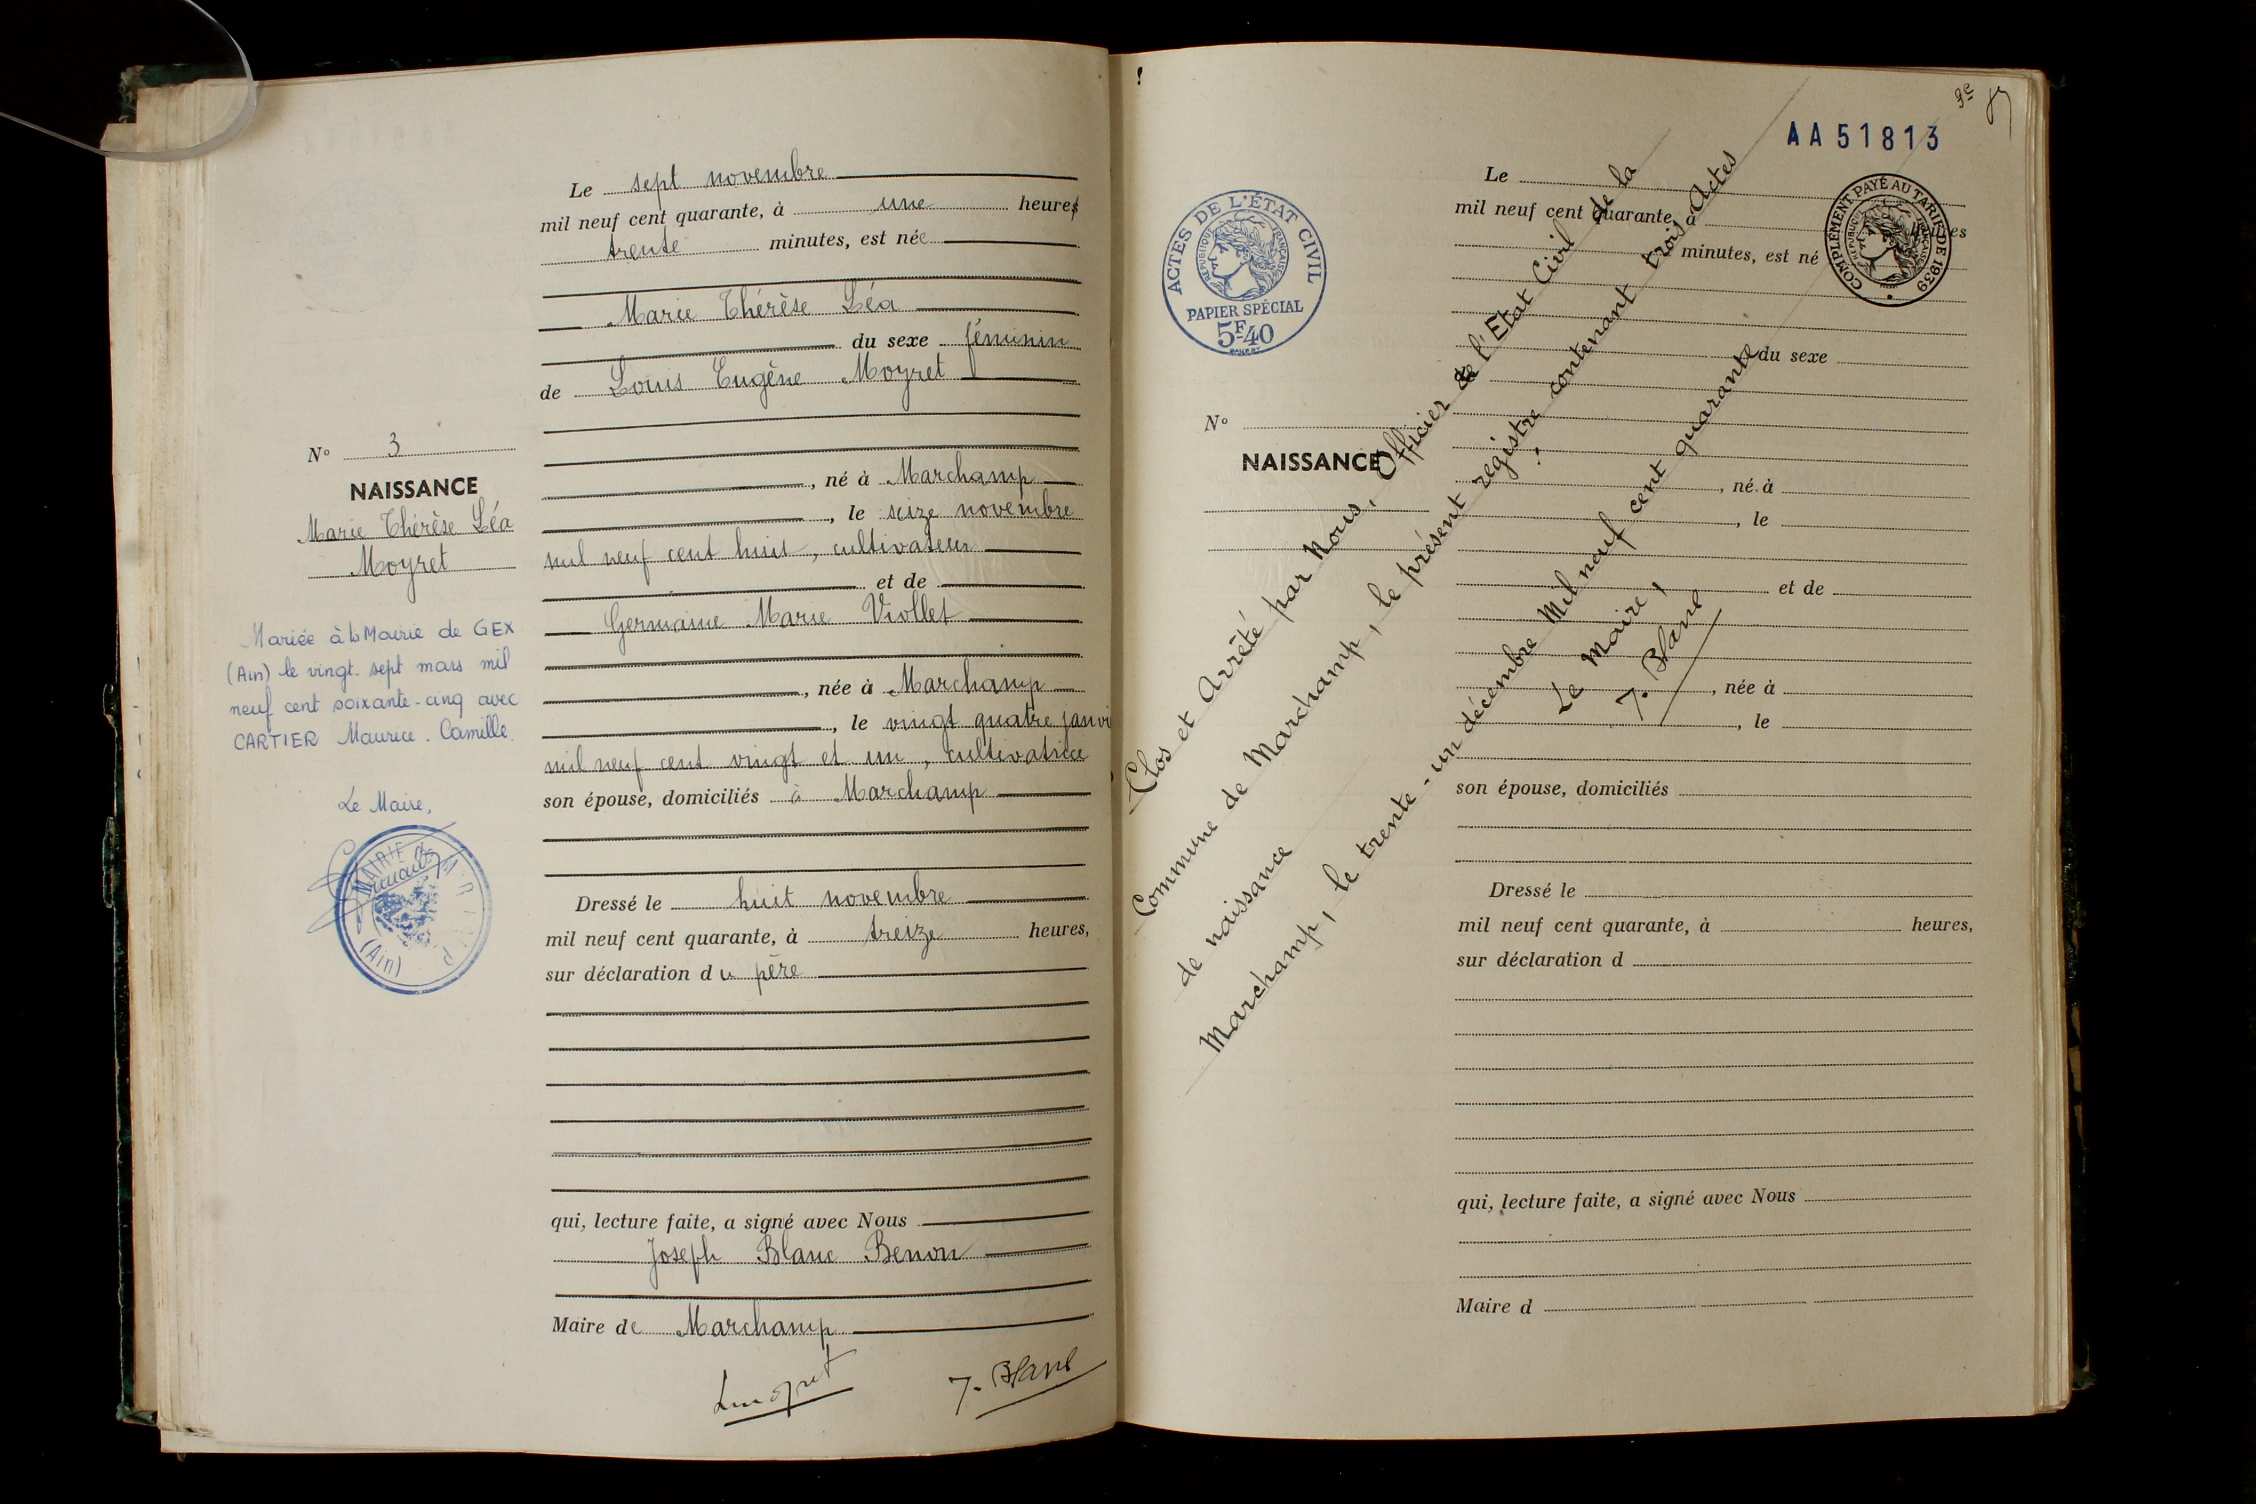 Le sept novembre
mil neuf cent quarante, à une heures
trente minutes, est née
Marie Thérèse Léa
du sexe féminin
de Louis Eugène Moyret
, né à Marchamp
, le seize novembre
mil neuf cent huit, cultivateur
et de
Germaine Marie Viollet
, née à Marchamp
, le vingt quatre janvi
mil neuf cent vingt et un, cultivatrice
son épouse, domiciliés à Marchamp
Dressé le huit novembre
mil neuf cent quarante, à treize heures,
sur déclaration du père
qui, lecture faite, a signé avec Nous
Joseph Blanc Benon
Maire de Marchamp
J. Blanc
N° 3
NAISSANCE
Marie Thérèse Léa
Moyret
Mariée à la Mairie de GEX
(Ain) le vingt-sept mars mil
neuf cent soixante-cinq avec
CARTIER Maurice-Camille.
Le Maire,
MAIRIE de
(Ain)
3e
AA51813
ACTES DE L'ÉTAT CIVIL
RÉPUBLIQUE FRANÇAISE
PAPIER SPÉCIAL
5F40
COMPLÉMENT PAYÉ AU TARIF DE 1939
RÉPUBLIQUE FRANÇAISE
Le
mil neuf cent quarante, à heures
minutes, est né
du sexe
N°
NAISSANCE
, né à
, le
et de
, née à
, le
son épouse, domiciliés
Dressé le
mil neuf cent quarante, à heures,
sur déclaration d
qui, lecture faite, a signé avec Nous
Maire d
Clos et Arrêté par Nous, Officier de l'Etat Civil de la
Commune de Marchamp, le présent registre contenant trois Actes
de naissance
Marchamp, le trente-un décembre Mil neuf cent quarante
Le Maire,
J. Blanc